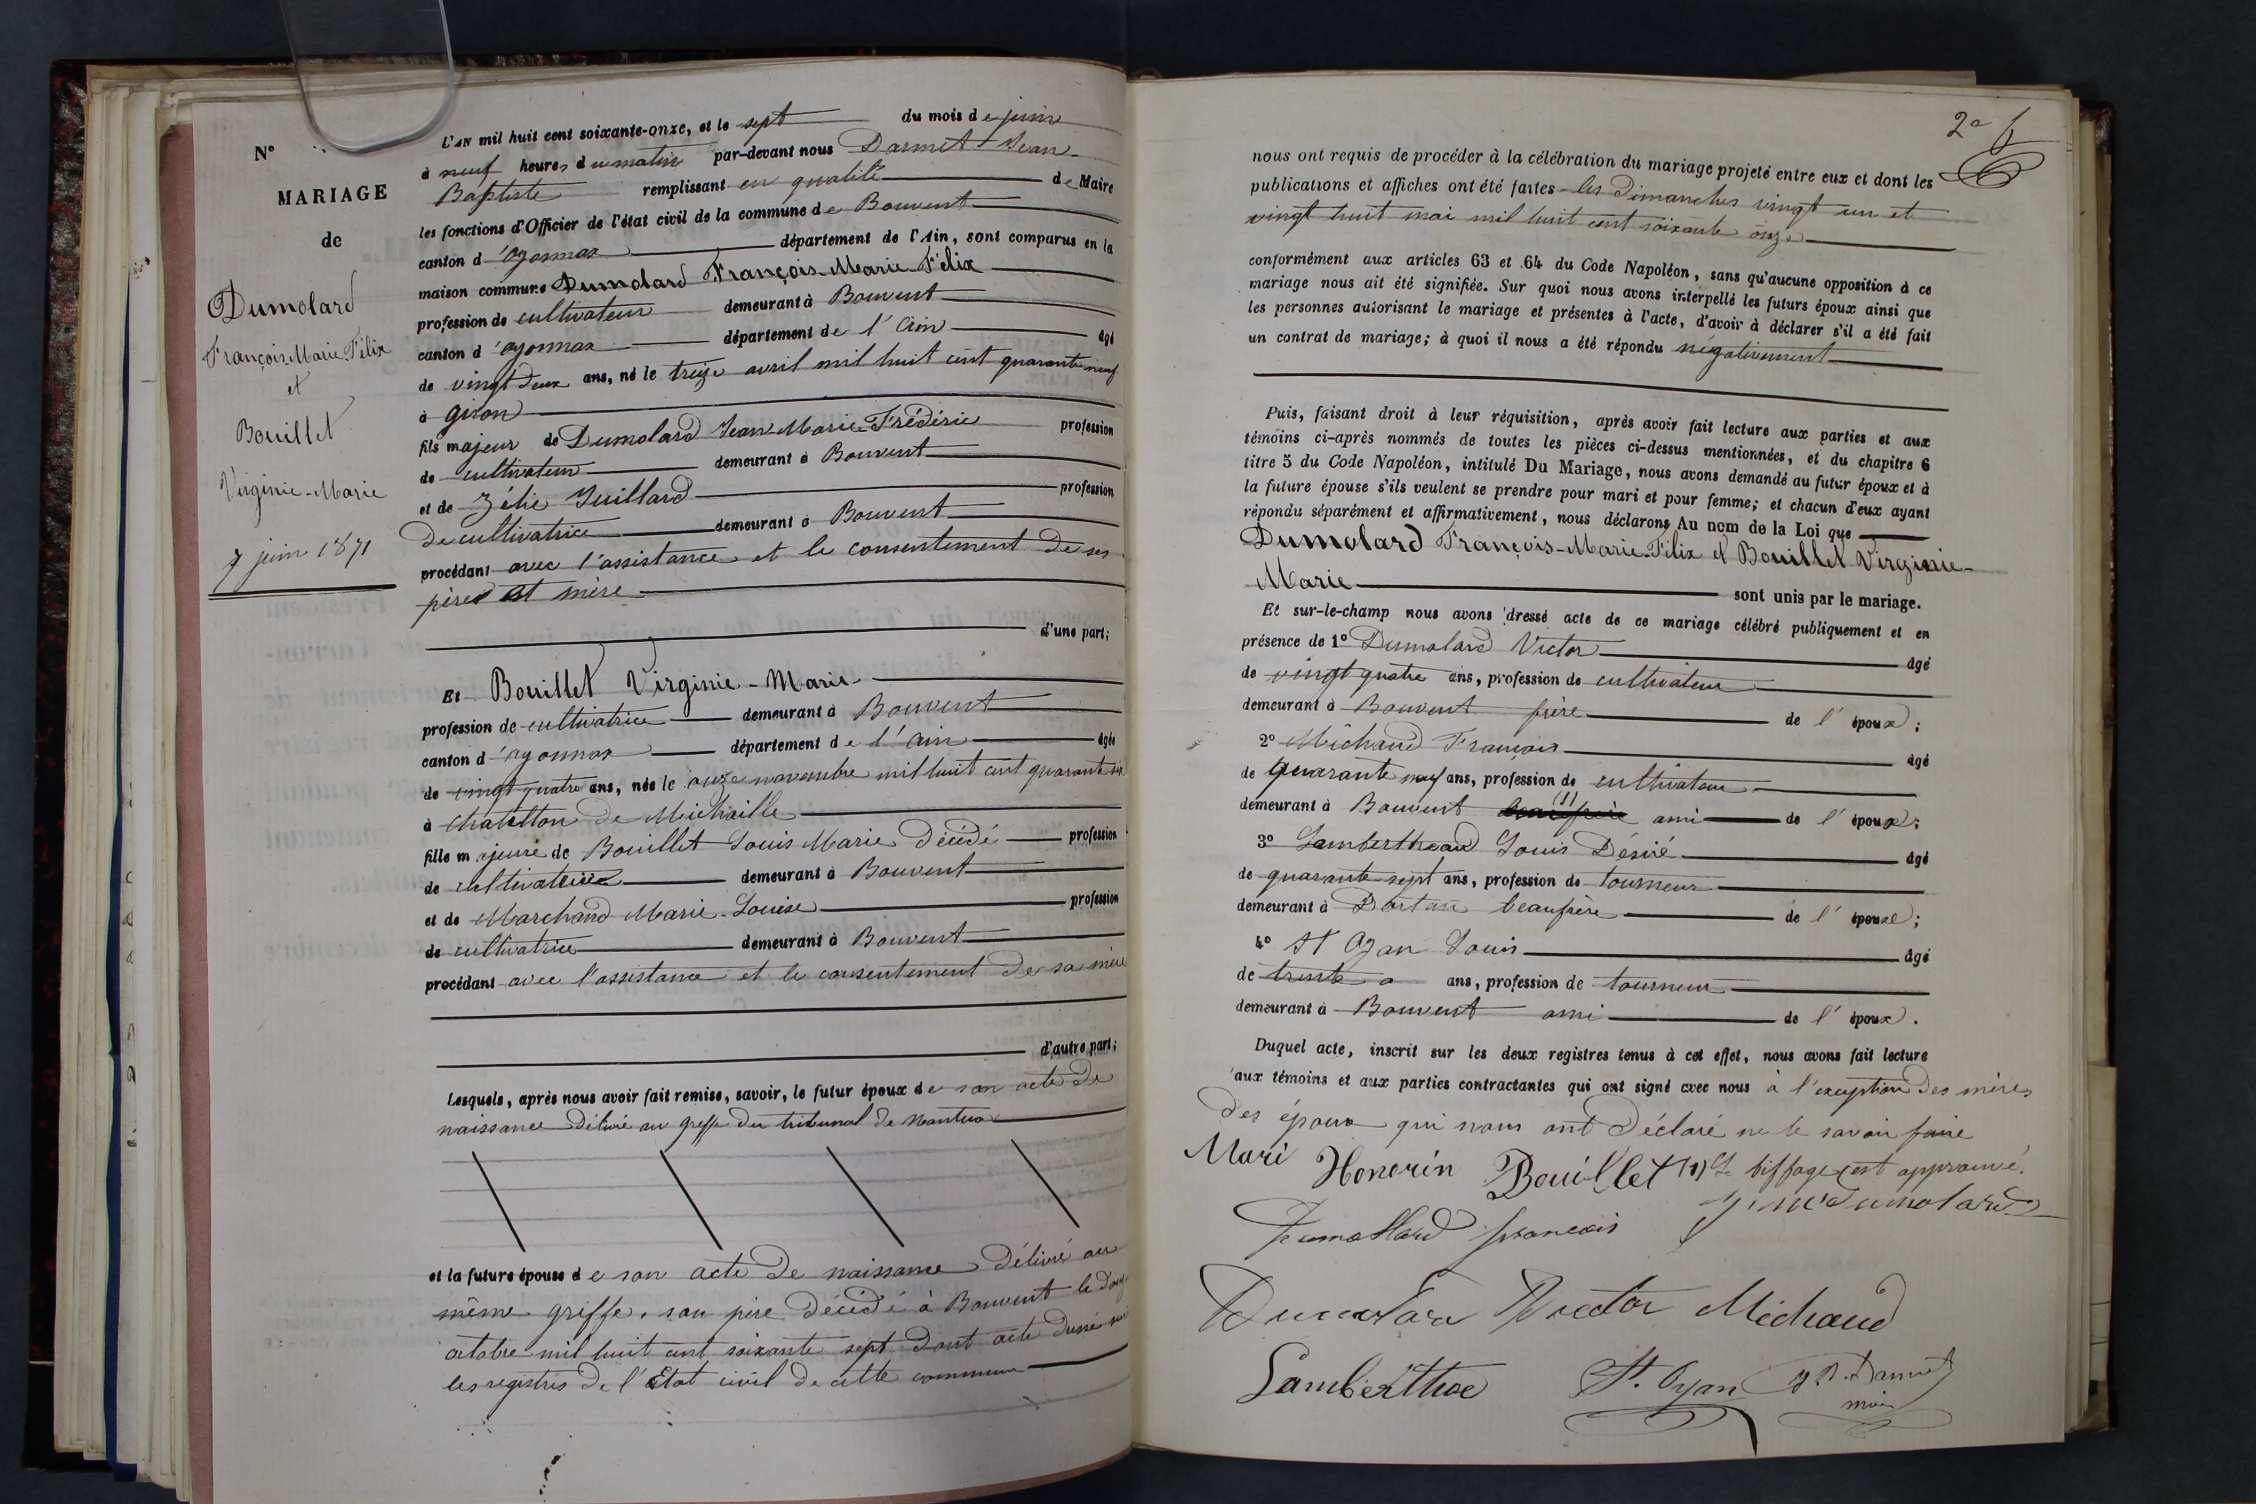 N°
MARIAGE
de
Dumolard
François-Marie Félix
et
Bouillet
Virginie-Marie
7 juin 1871
L'AN mil huit cent soixante-onze, et le sept du mois de juin
à neuf heures du matin par-devant nous Darmet Jean
Baptiste remplissant en qualité de Maire
les fonctions d'Officier de l'état civil de la commune de Bouvent
canton d'oyonnax département de l'Ain, sont comparus en la
maison commune Dumolard François-Marie Félix
profession de cultivateur demeurant à Bouvent
canton d'oyonnax département de l'Ain âgé
de vingt deux ans, né le treize avril mil huit cent quarante neuf
à giron
fils majeur de Dumolard Jean Marie Frédéric profession
de cultivateur demeurant à Bouvent
et de Zélie Juillard profession
de cultivatrice demeurant à Bouvent
procédant avec l'assistance et le consentement de ses
père et mère
d'une part;
Et Bouillet Virginie-Marie
profession de cultivatrice demeurant à Bouvent
canton d'oyonnax département de l'Ain âgée
de vingt quatre ans, née le onze novembre mil huit cent quarante six
à chatillon de Michaille
fille majeure de Bouillet Louis Marie décédé profession
de cultivatrice demeurant à Bouvent
et de Marchand Marie-Louise profession
de cultivatrice demeurant à Bouvent
procédant avec l'assistance et le consentement de sa mère
d'autre part;
Lesquels, après nous avoir fait remise, savoir, le futur époux de son acte de
naissance délivré au greffe du tribunal de Nantua
et la future épouse de son acte de naissance délivré au
même greffe, son père décédé à Bouvent le douze
octobre mil huit cent soixante sept dont acte dressé sur
les registres de l'Etat civil de cette commune
2a
nous ont requis de procéder à la célébration du mariage projeté entre eux et dont les
publications et affiches ont été faites les Dimanches vingt un et
vingt huit mai mil huit cent soixante onze
conformément aux articles 63 et 64 du Code Napoléon, sans qu'aucune opposition à ce
mariage nous ait été signifiée. Sur quoi nous avons interpellé les futurs époux ainsi que
les personnes autorisant le mariage et présentes à l'acte, d'avoir à déclarer s'il a été fait
un contrat de mariage; à quoi il nous a été répondu négativement
Puis, faisant droit à leur réquisition, après avoir fait lecture aux parties et aux
témoins ci-après nommés de toutes les pièces ci-dessus mentionnées, et du chapitre 6
titre 5 du Code Napoléon, intitulé Du Mariage, nous avons demandé au futur époux et à
la future épouse s'ils veulent se prendre pour mari et pour femme; et chacun d'eux ayant
répondu séparément et affirmativement, nous déclarons Au nom de la Loi que
Dumolard François-Marie-Félix et Bouillet Virginie-
Marie sont unis par le mariage.
Et sur-le-champ nous avons dressé acte de ce mariage célébré publiquement et en
présence de 1° Dumolard Victor âgé
de vingt quatre ans, profession de cultivateur
demeurant à Bouvent frère de l'époux;
2° Michaud François âgé
de quarante neuf ans, profession de cultivateur
demeurant à Bouvent beaufrère (1) ami de l'époux;
3° Lamberthoud Louis Désiré âgé
de quarante sept ans, profession de tourneur
demeurant à Dortan beaufrère de l'épouse;
4° St Oyan Louis âgé
de trente ans, profession de tourneur
demeurant à Bouvent ami de l'époux.
Duquel acte, inscrit sur les deux registres tenus à cet effet, nous avons fait lecture
aux témoins et aux parties contractantes qui ont signé avec nous à l'exception des mères
des époux qui nous ont déclaré ne le savoir faire
Mari Honorin Bouillet (1) Le biffage est approuvé.
Dumollard francois J. M. Dumolard
Dumolard Victor Michaud
Lamberthoe St. Oyan J. B. Darmet
maire